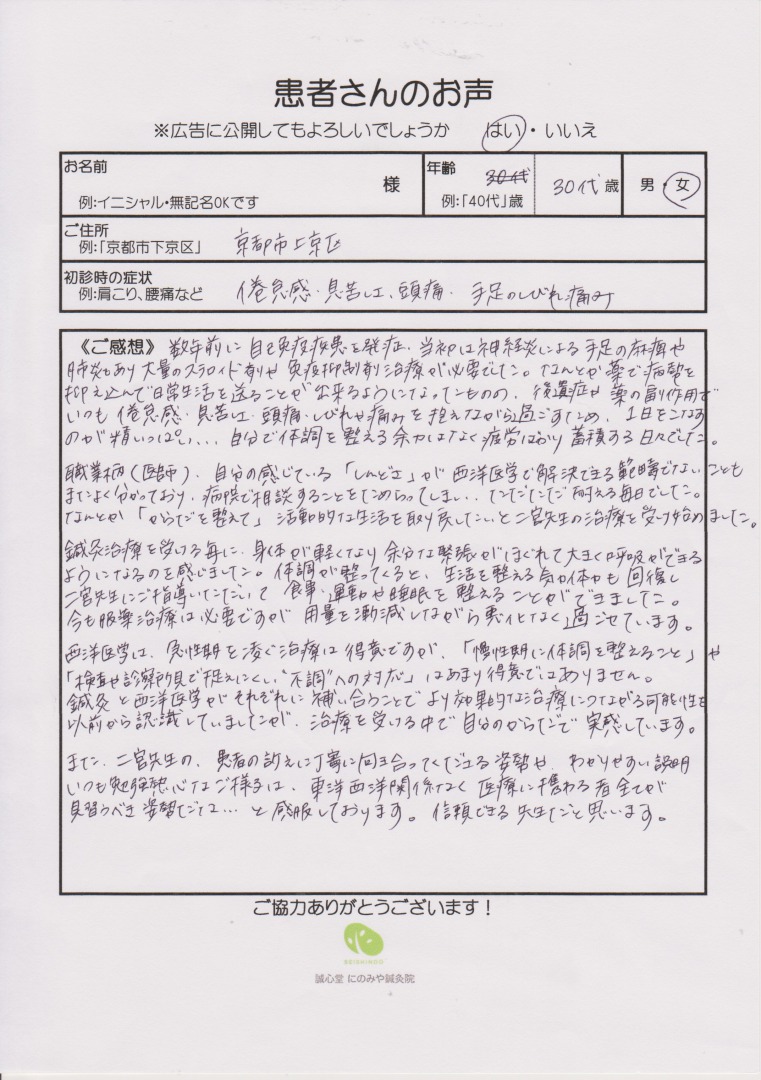 患者さんのお声
※広告に公開してもよろしいでしょうか はい・いいえ
お名前
様
例:イニシャル・無記名OKです
年齢
30代
例:「40代」歳
30代 歳
男・女
ご住所
例:「京都市下京区」
京都市上京区
初診時の症状
例:肩こり、腰痛など
倦怠感・息苦しさ、頭痛・手足のしびれ痛み
《ご感想》 数年前に自己免疫疾患を発症。当初は神経炎による手足の麻痺や
肺炎もあり大量のステロイド剤や免疫抑制剤治療が必要でした。なんとか薬で病勢を
抑え込んで日常生活を送ることが出来るようになったものの、後遺症や薬の副作用で
いつも倦怠感・息苦しさ・頭痛・しびれや痛みを抱えながら過ごすため、1日をこなす
のが精いっぱい、、、自分で体調を整える余力はなく疲労ばかり蓄積する日々でした。
職業柄(医師)、自分の感じている「しんどさ」が西洋医学で解決できる範疇でないことも
またよく分かっており、病院で相談することをためらってしまい、ただただ耐える毎日でした。
なんとか「からだを整えて」活動的な生活を取り戻したいと二宮先生の治療を受け始めました。
鍼灸治療を受ける毎に、身体が軽くなり余分な緊張がほぐれて大きく呼吸ができる
ようになるのを感じました。体調が整ってくると、生活を整える気力体力も回復し
二宮先生にご指導いただいて食事・運動や睡眠を整えることができました。
今も服薬治療は必要ですが用量を漸減しながら悪化なく過ごせています。
西洋医学は、急性期を凌ぐ治療は得意ですが、「慢性期に体調を整えること」や
「検査や診察所見で捉えにくい“不調”への対応」はあまり得意ではありません。
鍼灸と西洋医学がそれぞれに補い合うことでより効果的な治療につながる可能性を
以前から認識していましたが、治療を受ける中で自分のからだで実感しています。
また、二宮先生の、患者の訴えに丁寧に向き合ってくださる姿勢や、わかりやすい説明
いつも勉強熱心なご様子は、東洋西洋関係なく医療に携わる者全てが
見習うべき姿勢だなぁ…と感服しております。信頼できる先生だと思います。
ご協力ありがとうございます！
SEISHINDO
誠心堂 にのみや鍼灸院